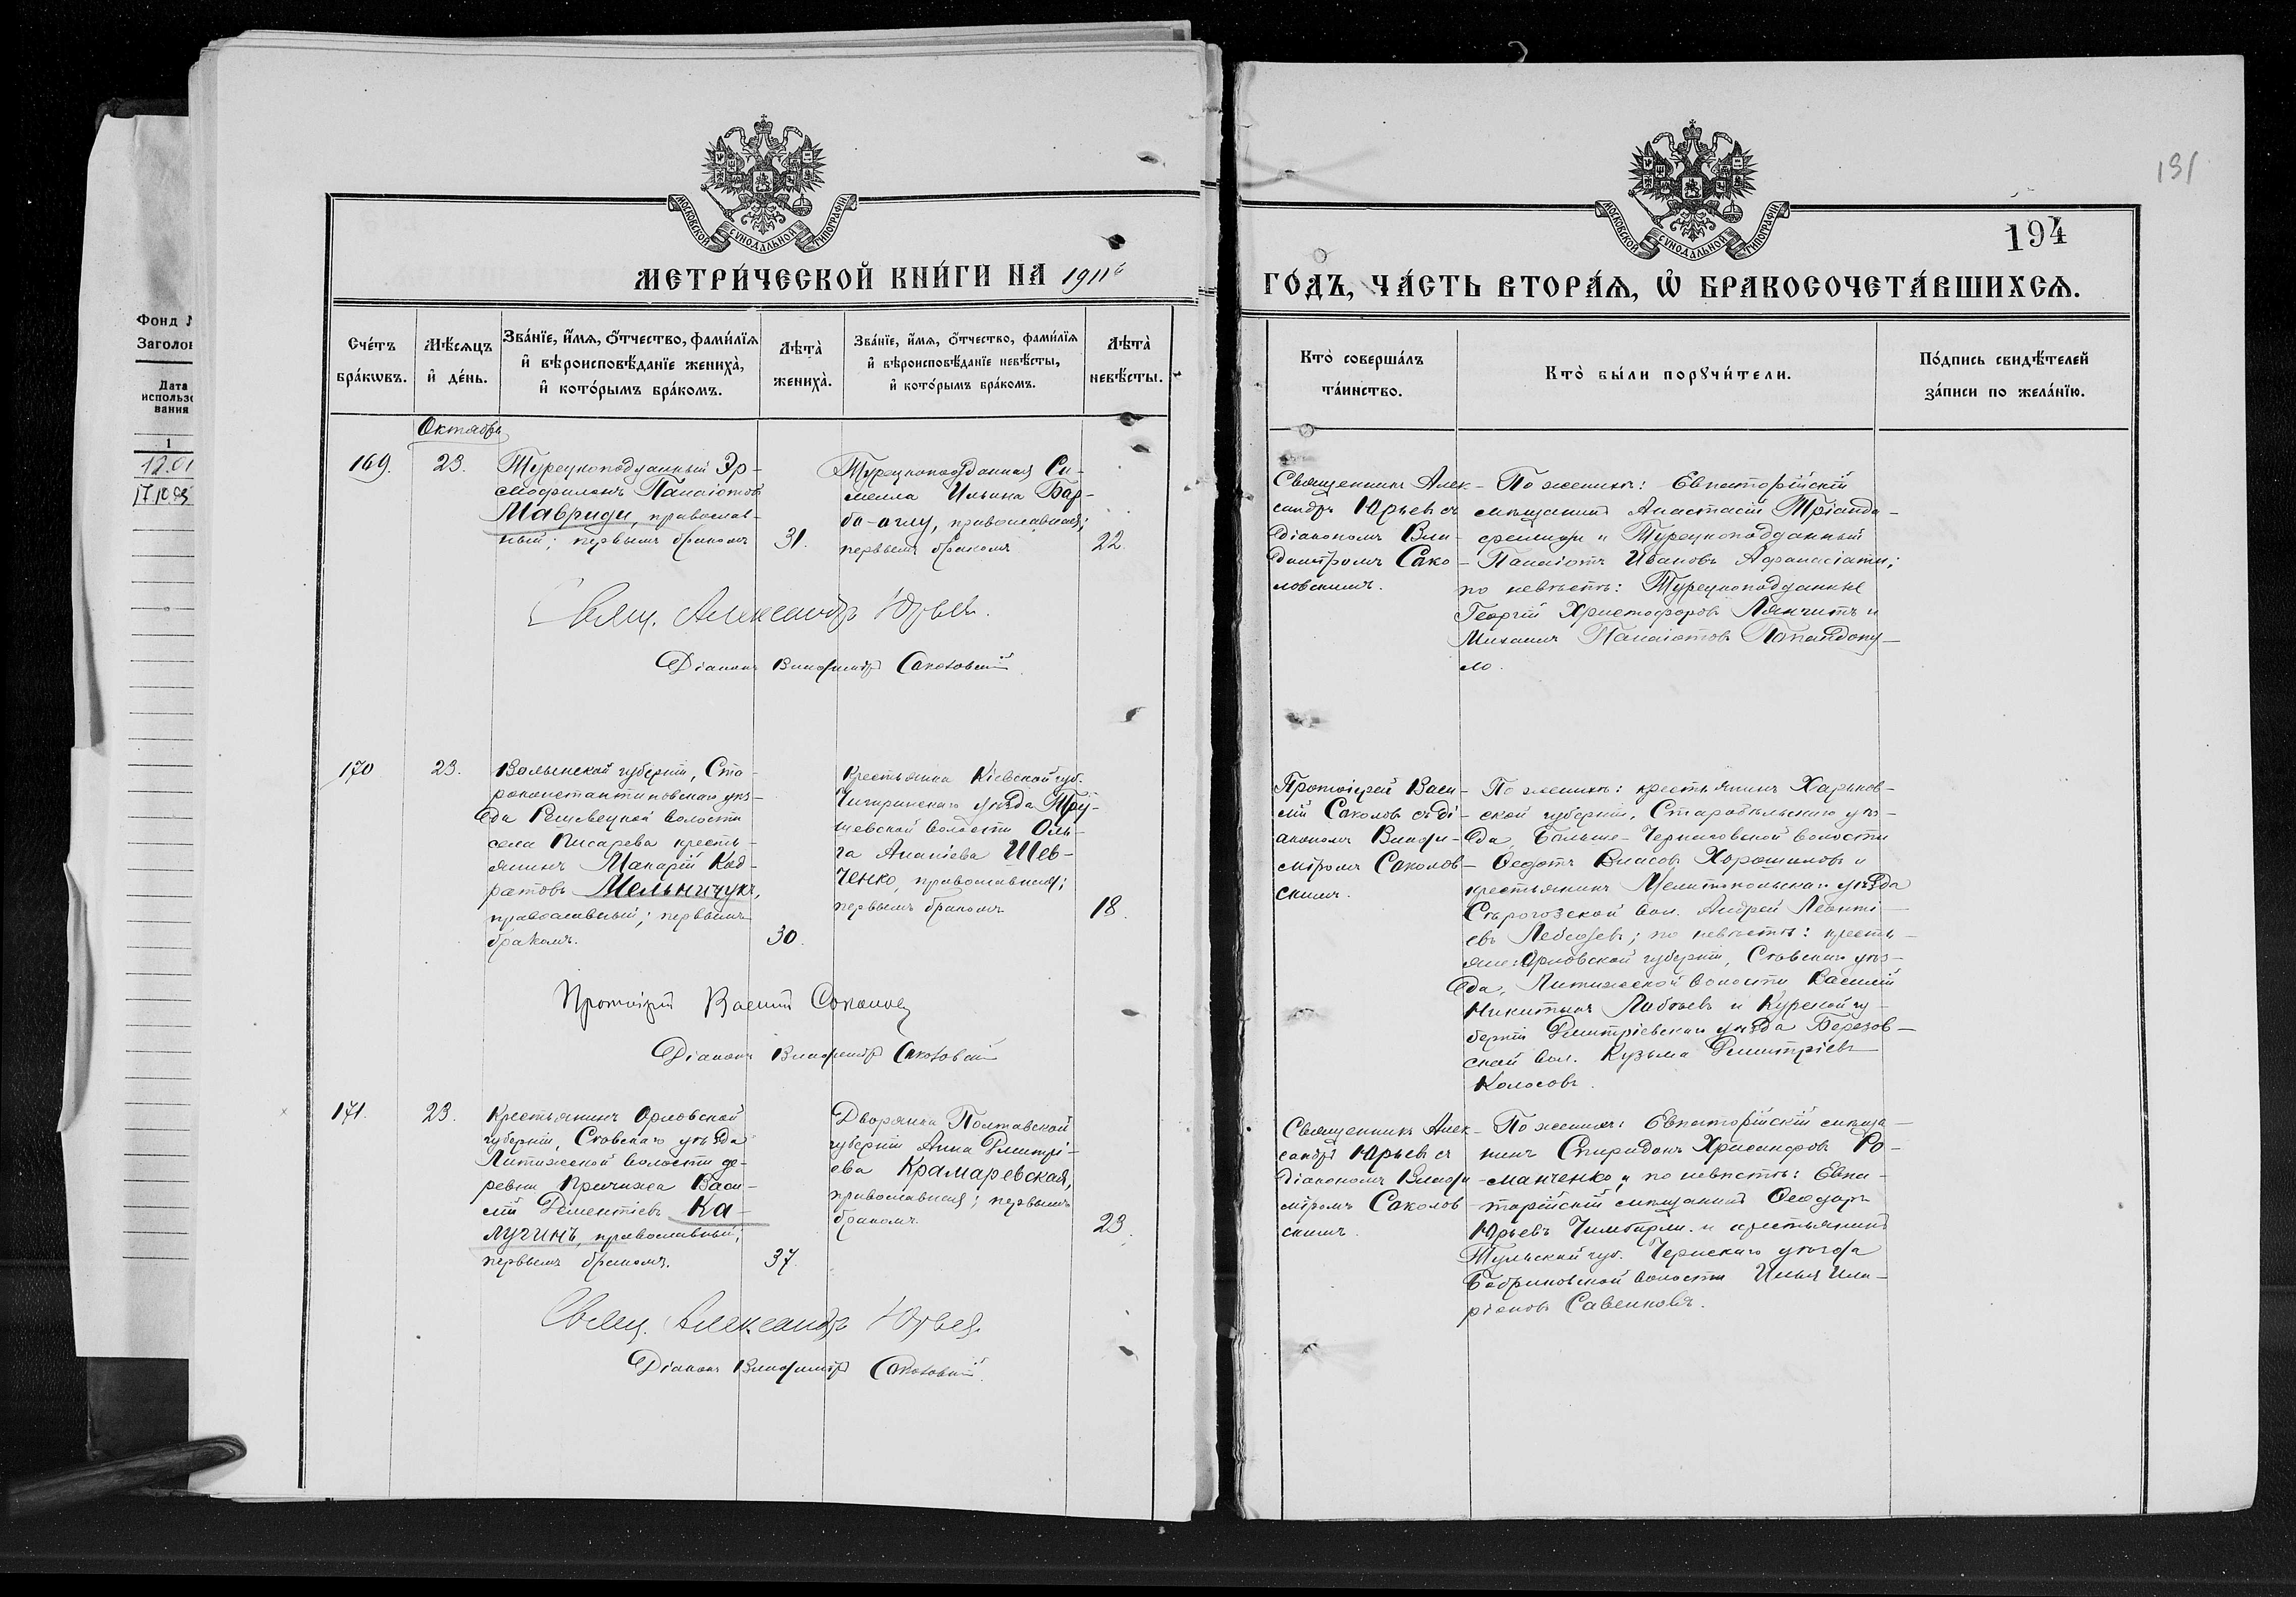 Фонд
Заголов
Дата
использо
вания
1
12.01
МОСКОВСКОЙ СѴНОДАЛЬНОЙ ТИПОГРАФІИ
МЕТРИ́ЧЕСКОЙ КНИ́ГИ НА 1911й
Сче́тъ бра́кωвъ.
Мѣ́сяцъ и҆ де́нь.
Зва́нїе, и҆́мѧ, ѻ҆́тчество, фами́лїѧ и҆ вѣроисповѣ́данїе жениха̀, и҆ кото́рымъ бра́комъ.
Лѣта̀ жениха̀.
Зва́нїе, и҆́мѧ, ѻ҆́тчество, фами́лїѧ и҆ вѣроисповѣ́данїе невѣ́сты, и҆ кото́рымъ бра́комъ.
Лѣта̀ невѣ́сты.
Октябрь
169.
23.
Турецкоподданный Эр-
мофилонъ Панаіотовъ
Мавриди, православ-
ный; первымъ бракомъ
31.
Турецкоподданная Си-
мелла Ильина Бар-
ба-оглу, православная;
первымъ бракомъ
22.
Свящ. Александръ Юрьевъ.
Діаконъ Владиміръ Соколовскій.
170
23.
Волынской губерніи, Ста-
роконстантиновскаго уѣз-
да Решовецкой волости
села Писарева кресть-
янинъ Макарій Код-
ратовъ Мельничукъ,
православный; первымъ
бракомъ.
30.
Крестьянка Кіевской губ.
Чигиринскаго уѣзда Тру-
шевской волости Оль-
га Ананіева Шев-
ченко, православная;
первымъ бракомъ
18.
Протоіерей Василій Соколовъ
Діаконъ Владиміръ Соколовскій
171.
23.
Крестьянинъ Орловской
губерніи, Сѣвскаго уѣзда
Литижской волости де-
ревни Причижа Васи-
лій Дементіевъ Ка-
лугинъ, православный;
первымъ бракомъ.
37.
Дворянка Полтавской
губерніи Анна Димитрі-
ева Крамаревская,
православная; первымъ
бракомъ.
23.
Свящ. Александръ Юрьевъ.
Діаконъ Владиміръ Соколовскій.
191
МОСКОВСКОЙ СѴНОДАЛЬНОЙ ТИПОГРАФІИ
194
ГО́ДЪ, ЧА́СТЬ ВТОРА́Ѧ, Ѡ҆ БРАКОСОЧЕТА́ВШИХСѦ.
Кто̀ соверша́лъ та́инство.
Кто̀ бы́ли порꙋчи́тели.
По́дпись свидѣ́телей за́писи по жела́нїю.
Священникъ Алек-
сандръ Юрьевъ съ
діакономъ Вла-
диміромъ Соко-
ловскимъ.
По женихѣ: Евпаторійскій
мѣщанинъ Анастасій Тріанда-
филиди и Турецкоподданный
Панаіотъ Ивановъ Афанасіати;
по невѣстѣ: Турецкоподданные
Георгій Христофоровъ Лянчитъ и
Михаилъ Панаіотовъ Попандопу-
ло.
Протоіерей Васи-
лій Соколовъ съ ді-
акономъ Влади-
міромъ Соколов-
скимъ.
По женихѣ: крестьянинъ Харьков-
ской губерніи, Старобѣльскаго уѣз-
да, Больше-Черниговской волости
Ѳедотъ Власовъ Хорошиловъ и
крестьянинъ Мелитопольскаго уѣзда
Серогозской вол. Андрей Леонті-
евъ Лебедевъ; по невѣстѣ: кресть-
яне: Орловской губерніи, Сѣвскаго уѣз-
да, Литижской волости Василій
Никитинъ Лабоевъ и Курской гу-
берніи Димитріевскаго уѣзда Березов-
ской вол. Кузьма Димитріевъ
Колосовъ.
Священникъ Алек-
сандръ Юрьевъ съ
діакономъ Влади-
міромъ Соколов-
скимъ.
По женихѣ: Евпаторійскій мѣща-
нинъ Спиридонъ Хрисанфовъ Ро-
манченко, и по невѣстѣ: Евпа-
торійскій мѣщанинъ Ѳеодоръ
Юрьевъ Чимбирли и крестьянинъ
Тульской губ. Чернскаго уѣзда
Бобриковской волости Илья Ила-
ріоновъ Савенковъ.